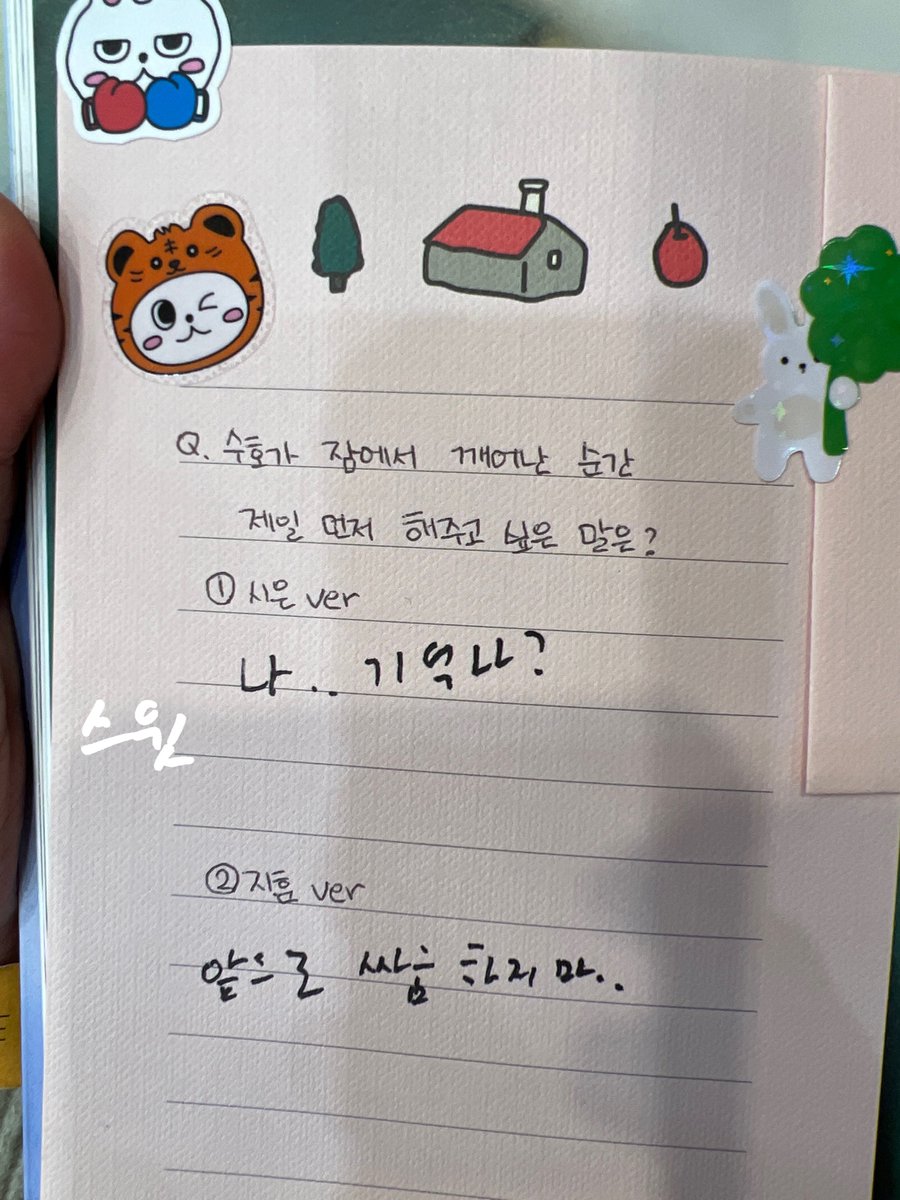 Q. 수호가 잠에서 깨어난 순간
제일 먼저 해주고 싶은 말은?
① 시은 ver
나.. 기억나?
스윗
② 지훔 ver
앞으로 싸움 하지마..